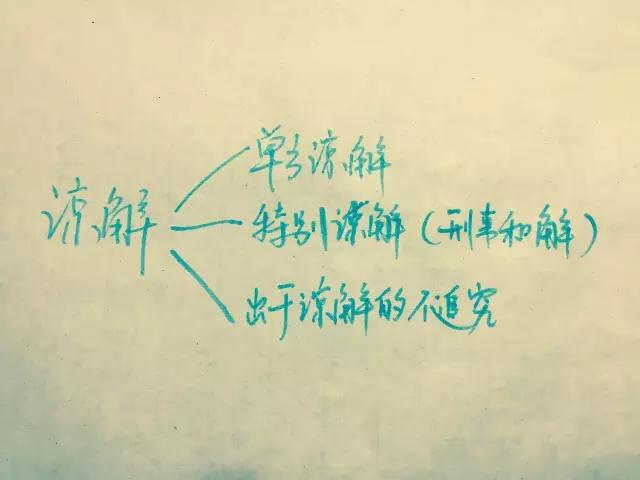 谅解
单方谅解
特别谅解（刑事和解）
出于谅解的不追究